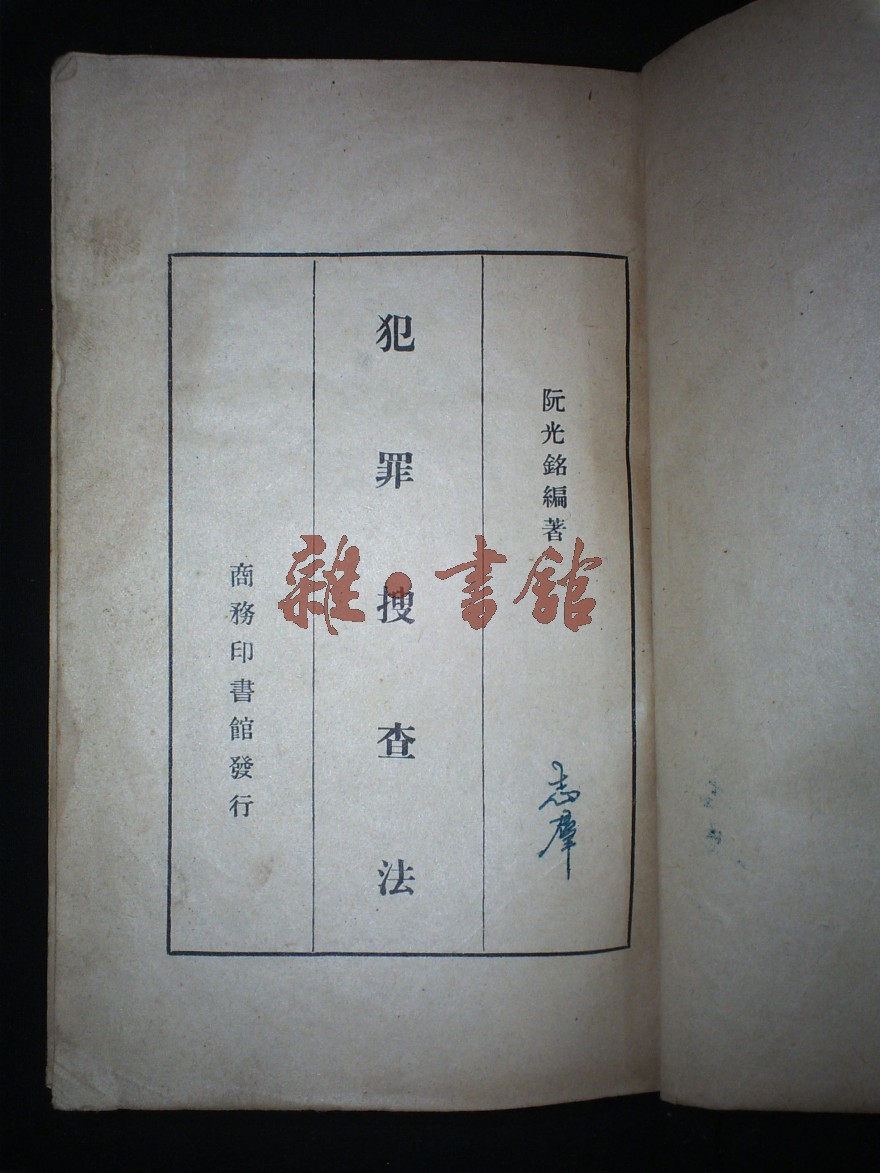 阮光銘編著
犯罪搜查法
商務印書館發行
志羣
雜·書館